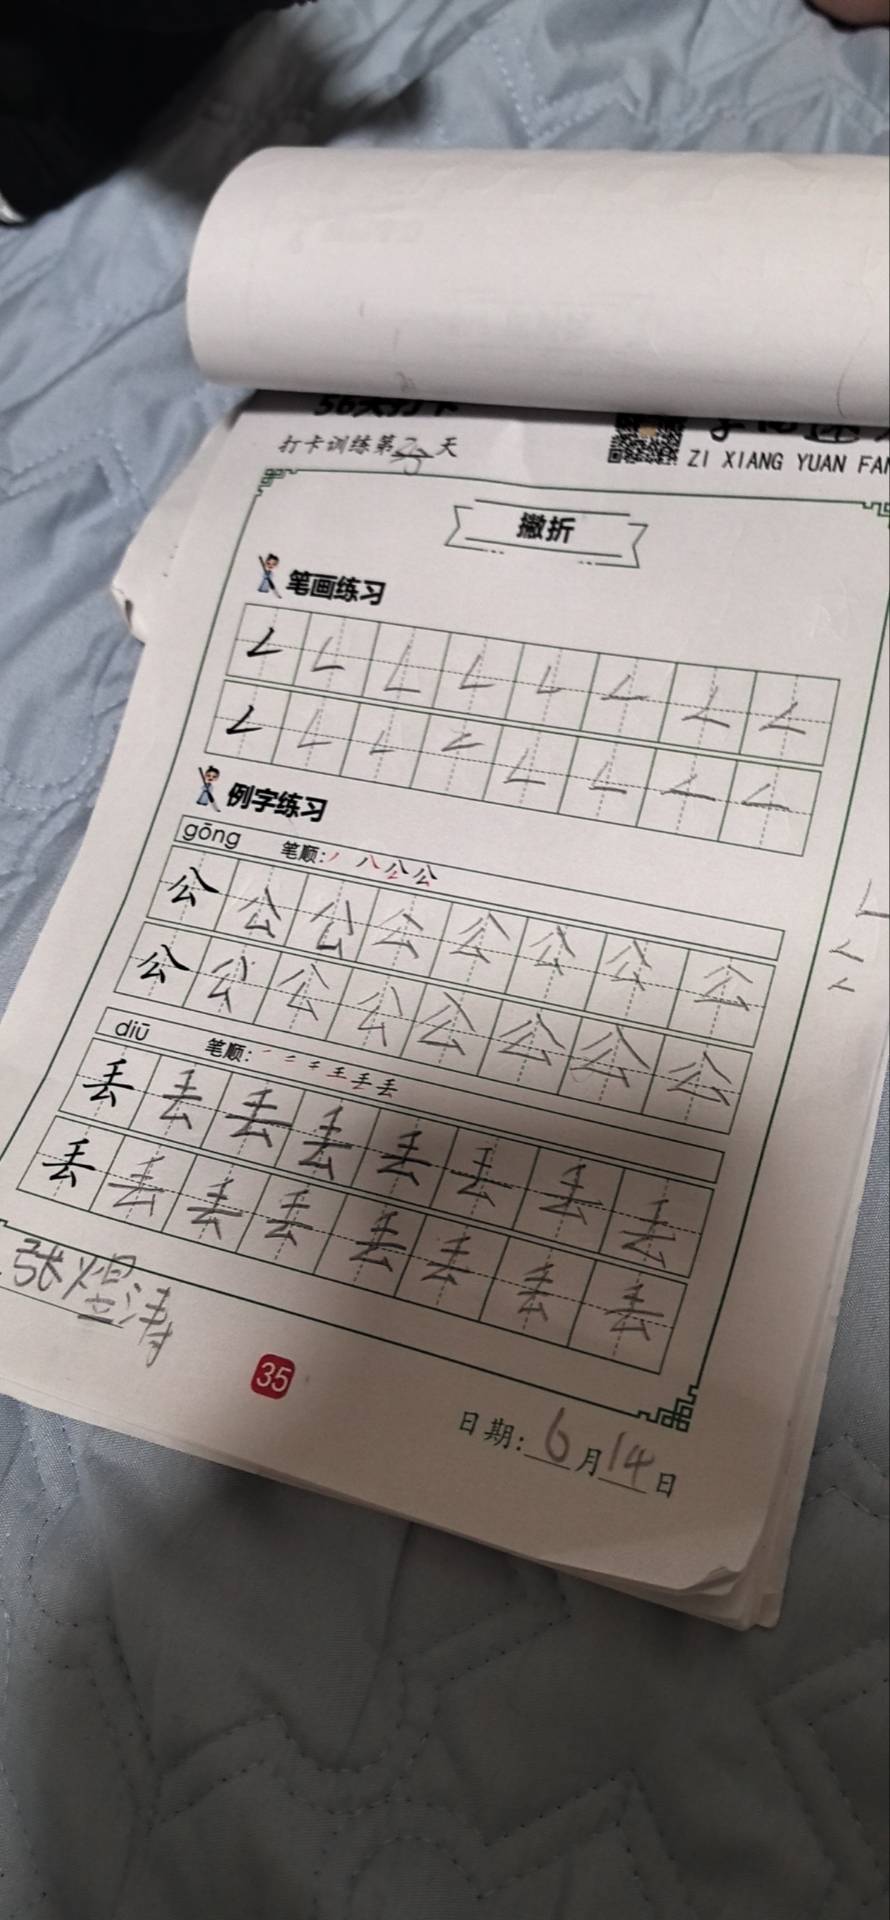 56天打卡
打卡训练第天
ZI XIANG YUAN FA
撇折
笔画练习
例字练习
gōng 笔顺:丿 八 公 公
公 公 公 公 公 公 公 公
公 公 公 公 公 公 公 公
diū 笔顺:
丢 丢 丢 丢 丢 丢 丢 丢
丢 丢 丢 丢 丢 丢 丢 丢
张煜涛
35
日期:6月14日